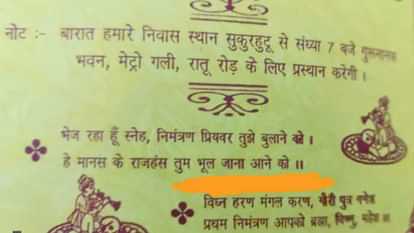 नोट :- बारात हमारे निवास स्थान सुकुरहुटू से संध्या 7 बजे गुरुनानक
भवन, मेट्रो गली, रातू रोड़ के लिए प्रस्थान करेगी।
भेज रहा हूँ स्नेह, निमंत्रण प्रियवर तुझे बुलाने को ।
हे मानस के राजहंस तुम भूल जाना आने को ।।
विघ्न हरण मंगल करण, गौरी पुत्र गणेश
प्रथम निमंत्रण आपको ब्रह्मा, विष्णु, महेश ।।